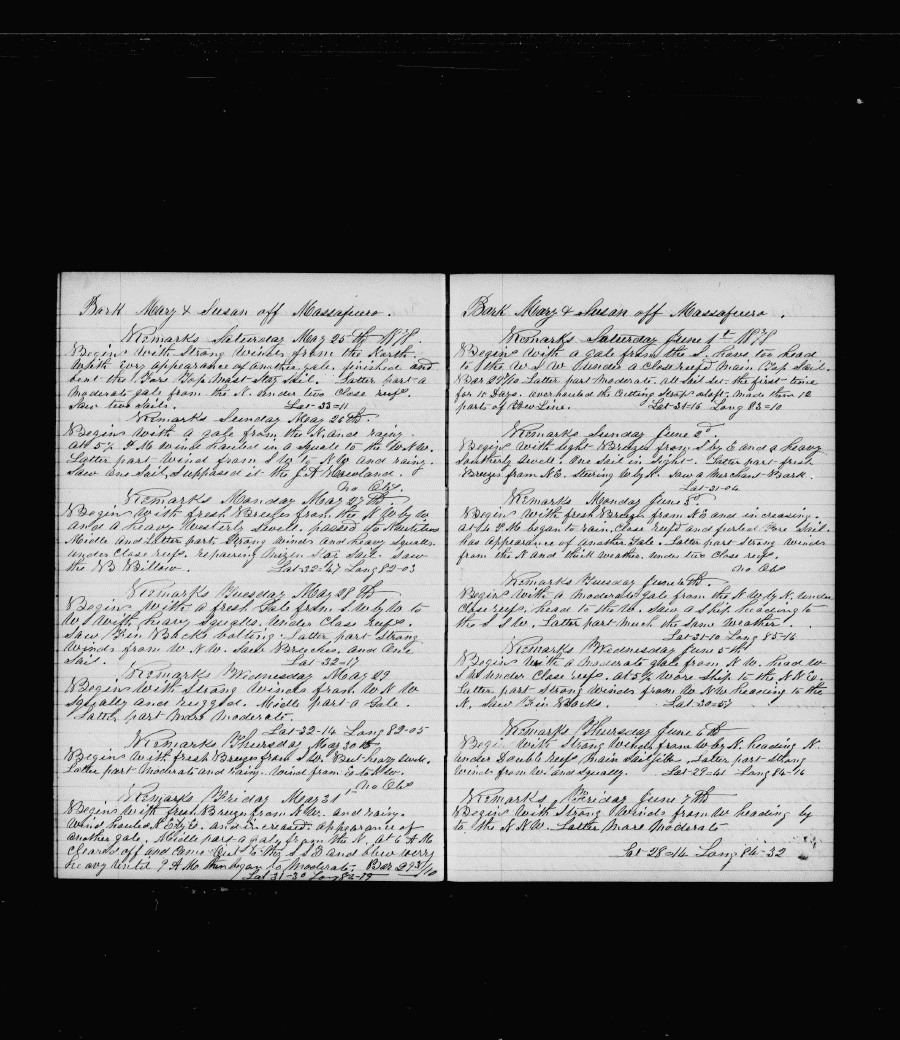 Bark Mary & Susan off Massafuero.
Remarks Saturday May 25th 1878
Begins with Strong Winds from the North
With evry appearance of another gale. finished and
bent the Fore Top Mast Stay Sail. Latter part a
moderate gale from the N. under two Close reefs.
Saw two Sails. Lat-33=11
Remarks Sunday May 26th.
Begins with a gale from the N. and rainy.
at 5½ P M wind hauled in a Squale to the W.N.W.
Latter part wind from S W to N W and rainy.
Saw one Sail, Supposed it the J A Howland.
No Obs.
Remarks Monday May 27th
Begins with fresh Breezes from the N W by W
and a heavy Westerly Swell. passed the Nautilus
Middle and Latter part Strong winds and heavy Squalls
under Close reefs. repairing Mizen Stay Sail. Saw
the NB Willow. Lat-32=47 Long 82-03
Remarks Tuesday May 28th
Begins with a fresh Gale from S W by W to
W S W with heavy Squalls. Under Close Reefs.
Saw Fin Backs bolting. Latter part Strong
Winds from W.N.W. Saw Breaches. and One
Sail. Lat-32=17
Remarks Wednesday May 29
Begins with Strong Winds from W N W
Squally and rugged. Middle part a Gale.
Latter part More moderate.
Lat-32-14 Long 82-05
Remarks Thursday May 30th
Begins with fresh Breezes from S W. But heavy Swell.
Latter part Moderate and Rainy. Wind from
No Obs
Remarks Friday May 31st
Begins with fresh Breezes from N.W. and rainy.
Wind hauled N. and increased. appearance of
another gale. Middle part a gale from the N. at 6 A Mo
Cleared off and Came Out to the S S E and blew verry
heavy until 9 A Mo then began to Moderate. Bar 29 3/10
Lat 31-30 Long 82-19
Bark Mary & Susan off Massafuero.
Remarks Saturday June 1st 1878
Begins with a gale from the S. have too head
to the W S W Under a Close reefd Main Top Sail.
Bar 29 Latter part Moderate. all Sail set. the first time
for 15 Days. overhauled the Cutting Strap aloft. made them 12
parts of Bow Line. Lat 31=16 Long 83=10
Remarks Sunday June 2d
Begins With light Breezes from S by E and a heavy
Southerly Swell. One Sail in Sight. Latter part fresh
Breezes from N.E. Stering W by N. Saw a Merchant Bark.
Lat-31-04
Remarks Monday June 3d
Begins with fresh Breezes from N E and in creasing.
at 4 P Mo began to rain. Close reefd and furled Fore Sail.
has appearance of another Gale. Latter part Strong winds
from the N and thick weather. under two Close reefs.
No Obs
Remarks Tuesday June 4th.
Begins with a moderate gale from the N W by N. under
Close reefs. head to the W. Saw a Ship heading to
the S S W. Latter part much the same weather.
Lat 31-10 Long 85-14
Remarks Wednesday June 5th
Begins With a moderate gale from N W. head W
S W under Close reefs. at 5½ wore Ship to the N N E.
Latter part Strong Winds from W N W heading to the
N. Saw Fin Backs. Lat-30=57
Remarks Thursday June 6th
Begins With Strong Winds from W by N. heading N.
under Double reefs main Latter part Strong
Wind from W. and Squally. Lat-29=41 Long 84-16
Remarks Friday June 7th
Begins With Strong Winds from W heading by
to the N.N.W. Latter More Moderate
Lat-28=14 Long 84-32